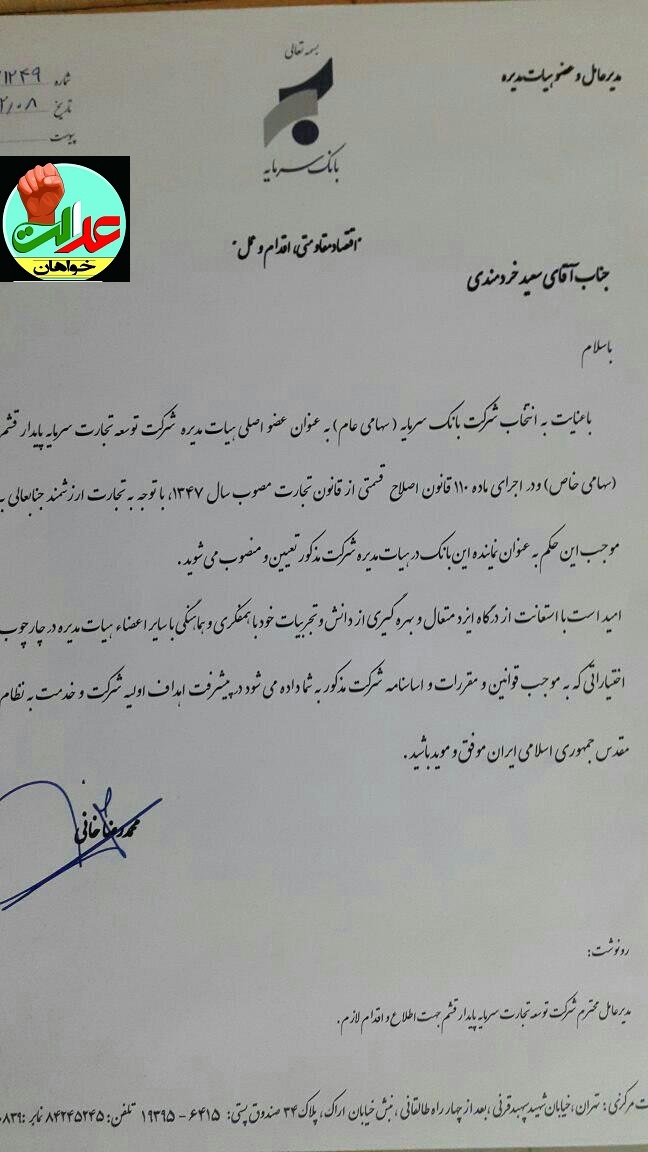 بسمه تعالی
بانک سرمایه
مدیرعامل و عضو هیات مدیره
شماره ۱۲۴۹
تاریخ ۲/۰۸
پیوست
عدالت
خواهان
"اقتصاد مقاومتی، اقدام و عمل"
جناب آقای سعید خردمندی
باسلام
باعنایت به انتخاب شرکت بانک سرمایه (سهامی عام) به عنوان عضو اصلی هیات مدیره شرکت توسعه تجارت سرمایه پایدار قشم
(سهامی خاص) و در اجرای ماده ۱۱۰ قانون اصلاح قسمتی از قانون تجارت مصوب سال ۱۳۴۷، با توجه به تجارت ارزشمند جنابعالی به
موجب این حکم به عنوان نماینده این بانک در هیات مدیره شرکت مذکور تعیین و منصوب می شوید.
امید است با استعانت از درگاه ایزد متعال و بهره گیری از دانش و تجربیات خود با همفکری و هماهنگی با سایر اعضاء هیات مدیره در چارچوب
اختیاراتی که به موجب قوانین و مقررات و اساسنامه شرکت مذکور به شما داده می شود در پیشرفت اهداف اولیه شرکت و خدمت به نظام
مقدس جمهوری اسلامی ایران موفق و موید باشید.
محمدرضا خانی
رونوشت:
مدیرعامل محترم شرکت توسعه تجارت سرمایه پایدار قشم جهت اطلاع و اقدام لازم.
مرکزی: تهران، خیابان شهید سپهبد قرنی، بعد از چهار راه طالقانی، نبش خیابان اراک، پلاک ۳۴ صندوق پستی: ۶۴۱۵ - ۱۹۳۹۵ تلفن: ۸۴۲۴۵۲۴۵ نمابر: ۰۸۳۹